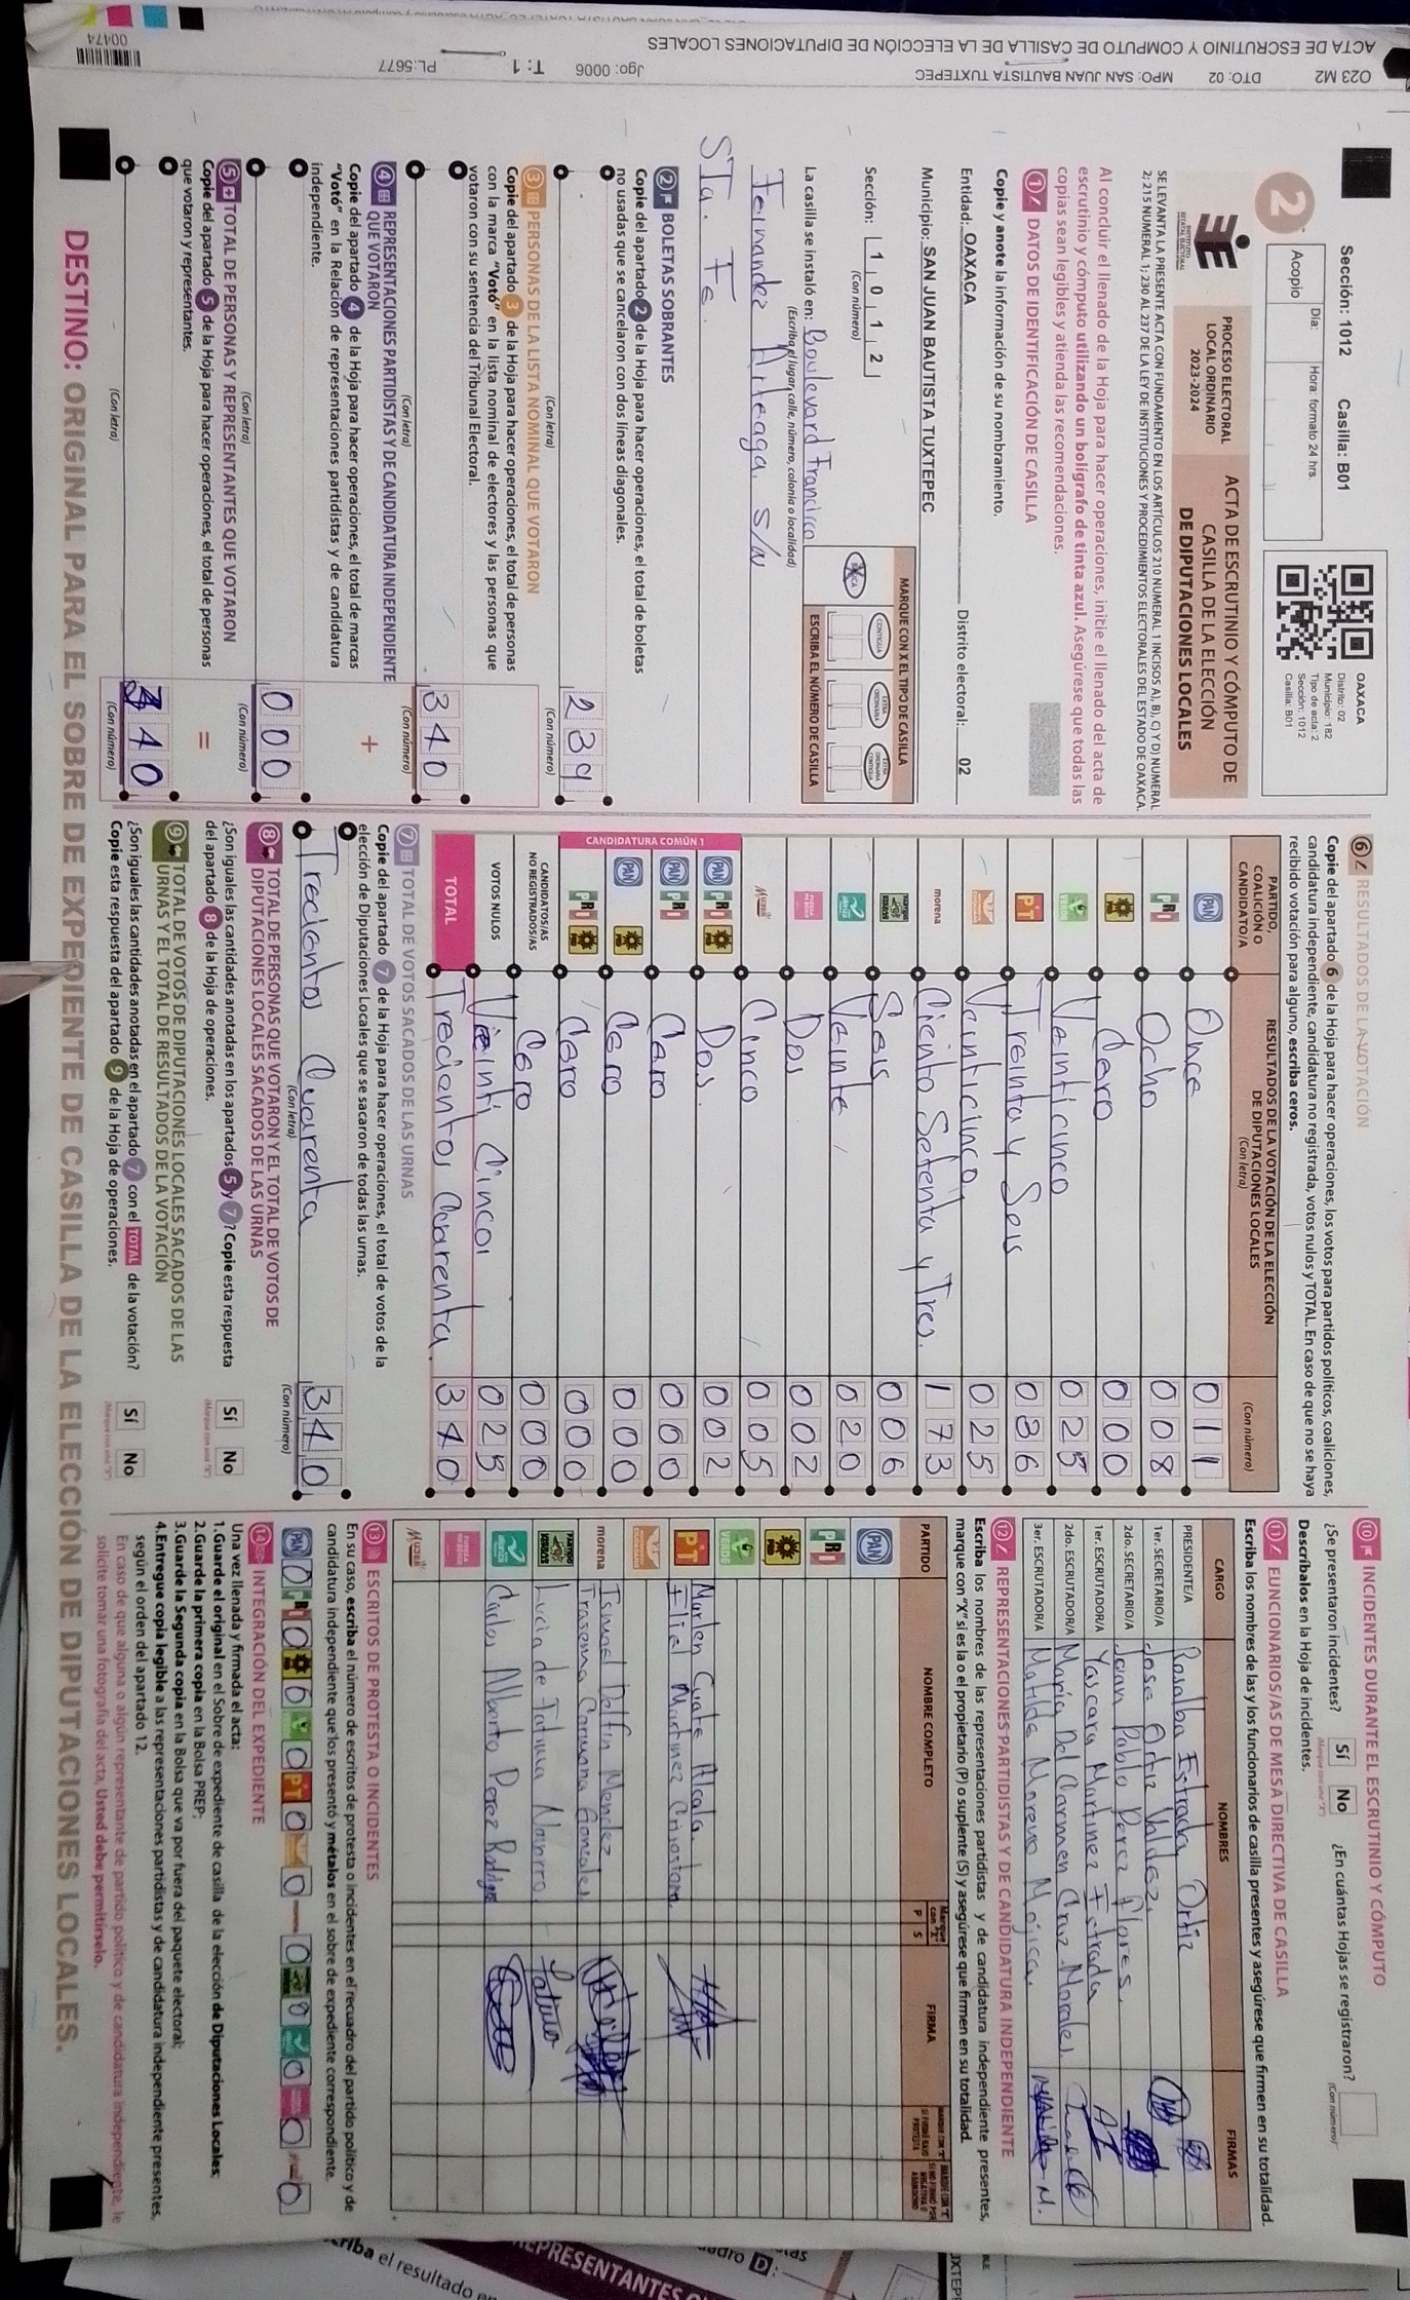 O23 M2 DTO: 02 MPO: SAN JUAN BAUTISTA TUXTEPEC Jgo: 0006 T: 1 PL:5677
ACTA DE ESCRUTINIO Y COMPUTO DE CASILLA DE LA ELECCIÓN DE DIPUTACIONES LOCALES
00474
Sección: 1012 Casilla: B01
2
Acopio
Día:
Hora: formato 24 hrs.
OAXACA
Distrito: 02
Municipio: 182
Tipo de acta: 2
Sección: 1012
Casilla: B01
PROCESO ELECTORAL
LOCAL ORDINARIO
2023-2024
ACTA DE ESCRUTINIO Y CÓMPUTO DE
CASILLA DE LA ELECCIÓN
DE DIPUTACIONES LOCALES
SE LEVANTA LA PRESENTE ACTA CON FUNDAMENTO EN LOS ARTÍCULOS 210 NUMERAL 1 INCISOS A), B), C) Y D) NUMERAL
2; 215 NUMERAL 1; 230 AL 237 DE LA LEY DE INSTITUCIONES Y PROCEDIMIENTOS ELECTORALES DEL ESTADO DE OAXACA.
Al concluir el llenado de la Hoja para hacer operaciones, inicie el llenado del acta de
escrutinio y cómputo utilizando un bolígrafo de tinta azul. Asegúrese que todas las
copias sean legibles y atienda las recomendaciones.
1 DATOS DE IDENTIFICACIÓN DE CASILLA
Copie y anote la información de su nombramiento.
Entidad: OAXACA Distrito electoral: 02
Municipio: SAN JUAN BAUTISTA TUXTEPEC
Sección: 1 0 1 2
(Con número)
MARQUE CON X EL TIPO DE CASILLA
BÁSICA
CONTIGUA
EXTRAORDINARIA
EXTRAORDINARIA CONTIGUA
ESCRIBA EL NÚMERO DE CASILLA
La casilla se instaló en: Boulevard Francisco
(Escriba el lugar, calle, número, colonia o localidad)
Fernandez Arteaga. S/N
STa. Fe.
2 BOLETAS SOBRANTES
Copie del apartado 2 de la Hoja para hacer operaciones, el total de boletas
no usadas que se cancelaron con dos líneas diagonales.
239
(Con letra) (Con número)
3 PERSONAS DE LA LISTA NOMINAL QUE VOTARON
Copie del apartado 3 de la Hoja para hacer operaciones, el total de personas
con la marca "Votó" en la lista nominal de electores y las personas que
votaron con su sentencia del Tribunal Electoral.
340
(Con letra) (Con número)
4 REPRESENTACIONES PARTIDISTAS Y DE CANDIDATURA INDEPENDIENTE
QUE VOTARON
+
Copie del apartado 4 de la Hoja para hacer operaciones, el total de marcas
"Votó" en la Relación de representaciones partidistas y de candidatura
independiente.
000
(Con letra) (Con número)
5 TOTAL DE PERSONAS Y REPRESENTANTES QUE VOTARON
=
Copie del apartado 5 de la Hoja para hacer operaciones, el total de personas
que votaron y representantes.
340
(Con letra) (Con número)
6 RESULTADOS DE LA VOTACIÓN
Copie del apartado 6 de la Hoja para hacer operaciones, los votos para partidos políticos, coaliciones,
candidatura independiente, candidatura no registrada, votos nulos y TOTAL. En caso de que no se haya
recibido votación para alguno, escriba ceros.
PARTIDO,
COALICIÓN O
CANDIDATO/A
RESULTADOS DE LA VOTACIÓN DE LA ELECCIÓN
DE DIPUTACIONES LOCALES
(Con letra)
(Con número)
PAN Once 011
PRI Ocho 008
PRD Cero 000
VERDE Veinticinco 025
PT Treinta y Seis 036
Veinticinco 025
morena Ciento Setenta y Tres. 173
Seis 006
Veinte 020
Dos 002
MUJER Cinco 005
CANDIDATURA COMÚN 1
PAN PRI PRD Dos. 002
PAN PRI Cero 000
PAN PRD Cero 000
PRI PRD Cero 000
CANDIDATOS/AS
NO REGISTRADOS/AS Cero 000
VOTOS NULOS Veinti Cinco 025
TOTAL Trecientos Cuarenta. 340
7 TOTAL DE VOTOS SACADOS DE LAS URNAS
Copie del apartado 7 de la Hoja para hacer operaciones, el total de votos de la
elección de Diputaciones Locales que se sacaron de todas las urnas.
Trecientos Cuarenta 340
(Con letra) (Con número)
8 TOTAL DE PERSONAS QUE VOTARON Y EL TOTAL DE VOTOS DE
DIPUTACIONES LOCALES SACADOS DE LAS URNAS
¿Son iguales las cantidades anotadas en los apartados 5 y 7? Copie esta respuesta
del apartado 8 de la Hoja de operaciones.
Sí No
9 TOTAL DE VOTOS DE DIPUTACIONES LOCALES SACADOS DE LAS
URNAS Y EL TOTAL DE RESULTADOS DE LA VOTACIÓN
¿Son iguales las cantidades anotadas en el apartado 7 con el TOTAL de la votación?
Copie esta respuesta del apartado 9 de la Hoja de operaciones.
Sí No
10 INCIDENTES DURANTE EL ESCRUTINIO Y CÓMPUTO
¿Se presentaron incidentes? Sí No ¿En cuántas Hojas se registraron?
(Con número)
Descríbalos en la Hoja de incidentes.
11 FUNCIONARIOS/AS DE MESA DIRECTIVA DE CASILLA
Escriba los nombres de las y los funcionarios de casilla presentes y asegúrese que firmen en su totalidad.
CARGO NOMBRES FIRMAS
PRESIDENTE/A Rosalba Estrada Ortiz
1er. SECRETARIO/A Jose Ortiz Valdez.
2do. SECRETARIO/A Juan Pablo Perez Flores.
1er. ESCRUTADOR/A Yascara Martinez Estrada
2do. ESCRUTADOR/A Maria Del Carmen Cruz Morales
3er. ESCRUTADOR/A Matilde Moreno Mojica.
12 REPRESENTACIONES PARTIDISTAS Y DE CANDIDATURA INDEPENDIENTE
Escriba los nombres de las representaciones partidistas y de candidatura independiente presentes,
marque con "X" si es la o el propietario (P) o suplente (S) y asegúrese que firmen en su totalidad.
PARTIDO NOMBRE COMPLETO Marque con "X" P S FIRMA
PAN
PRI
PRD
VERDE Marlen Alcala.
PT Eliel Martinez Crisostomo.
morena Ismael Delfin Mendez
Carmona Gonzalez
Lucia de Fatima Navarro.
Carlos Alberto Perez
MUJER
13 ESCRITOS DE PROTESTA O INCIDENTES
En su caso, escriba el número de escritos de protesta o incidentes en el recuadro del partido político y de
candidatura independiente que los presentó y métalos en el sobre de expediente correspondiente.
14 INTEGRACIÓN DEL EXPEDIENTE
Una vez llenada y firmada el acta:
1.Guarde el original en el Sobre de expediente de casilla de la elección de Diputaciones Locales;
2.Guarde la primera copia en la Bolsa PREP;
3.Guarde la Segunda copia en la Bolsa que va por fuera del paquete electoral;
4.Entregue copia legible a las representaciones partidistas y de candidatura independiente presentes,
según el orden del apartado 12.
En caso de que alguna o algún representante de partido político y de candidatura independiente, le
solicite tomar una fotografía del acta, Usted debe permitírselo.
DESTINO: ORIGINAL PARA EL SOBRE DE EXPEDIENTE DE CASILLA DE LA ELECCIÓN DE DIPUTACIONES LOCALES.